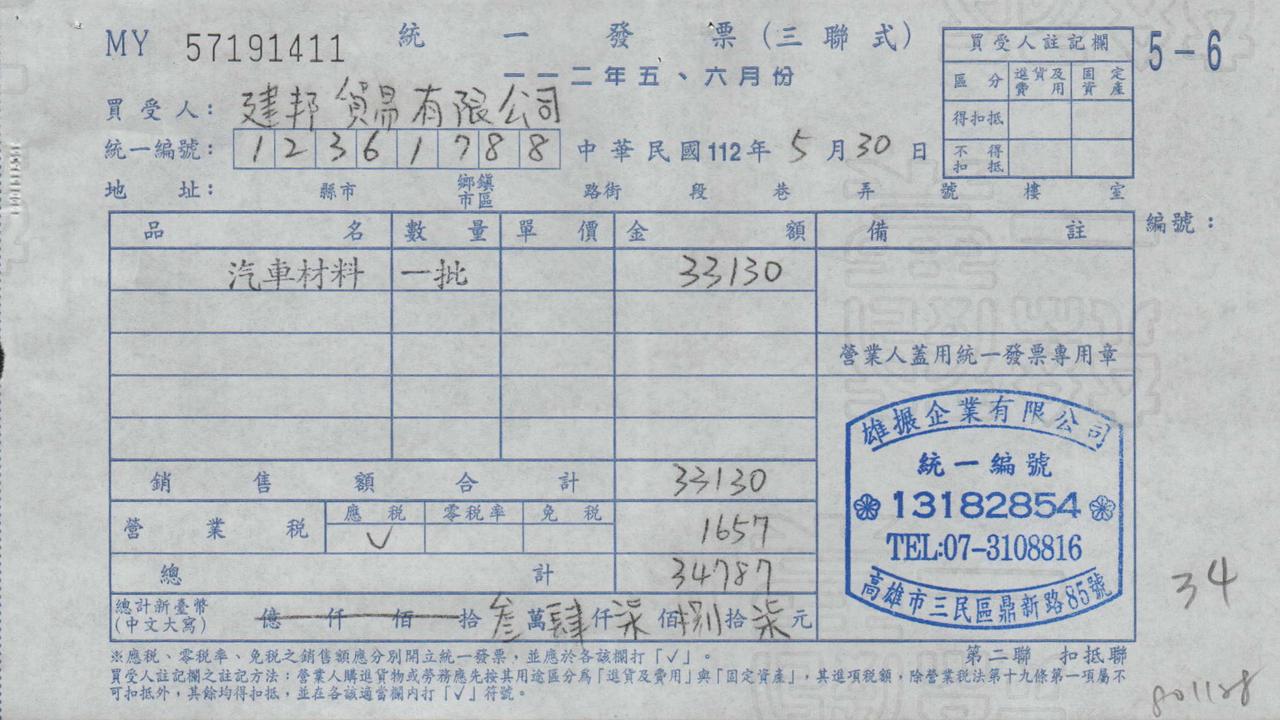 MY 57191411 統一發票(三聯式)
一一二年五、六月份
5-6
買受人註記欄
區分 進貨及費用 固定資產
得扣抵
不得扣抵
買受人: 建邦貿易有限公司
統一編號: 12361788 中華民國112年5月30日
地址: 縣市 鄉鎮市區 路街 段 巷 弄 號 樓 室
品名 數量 單價 金額 備註 編號:
汽車材料 一批 33130
營業人蓋用統一發票專用章
雄振企業有限公司
統一編號
13182854
TEL:07-3108816
高雄市三民區鼎新路85號
銷售額合計 33130
營業稅 應稅 零稅率 免稅 1657
✓
總計 34787
總計新臺幣(中文大寫) 億仟佰拾叁萬肆仟柒佰捌拾柒元
34
※應稅、零稅率、免稅之銷售額應分別開立統一發票,並應於各該欄打「✓」。
第二聯 扣抵聯
買受人註記欄之註記方法:營業人購進貨物或勞務應先按其用途區分為「進貨及費用」與「固定資產」,其進項稅額,除營業稅法第十九條第一項屬不
可扣抵外,其餘均得扣抵,並在各該適當欄內打「✓」符號。
801128